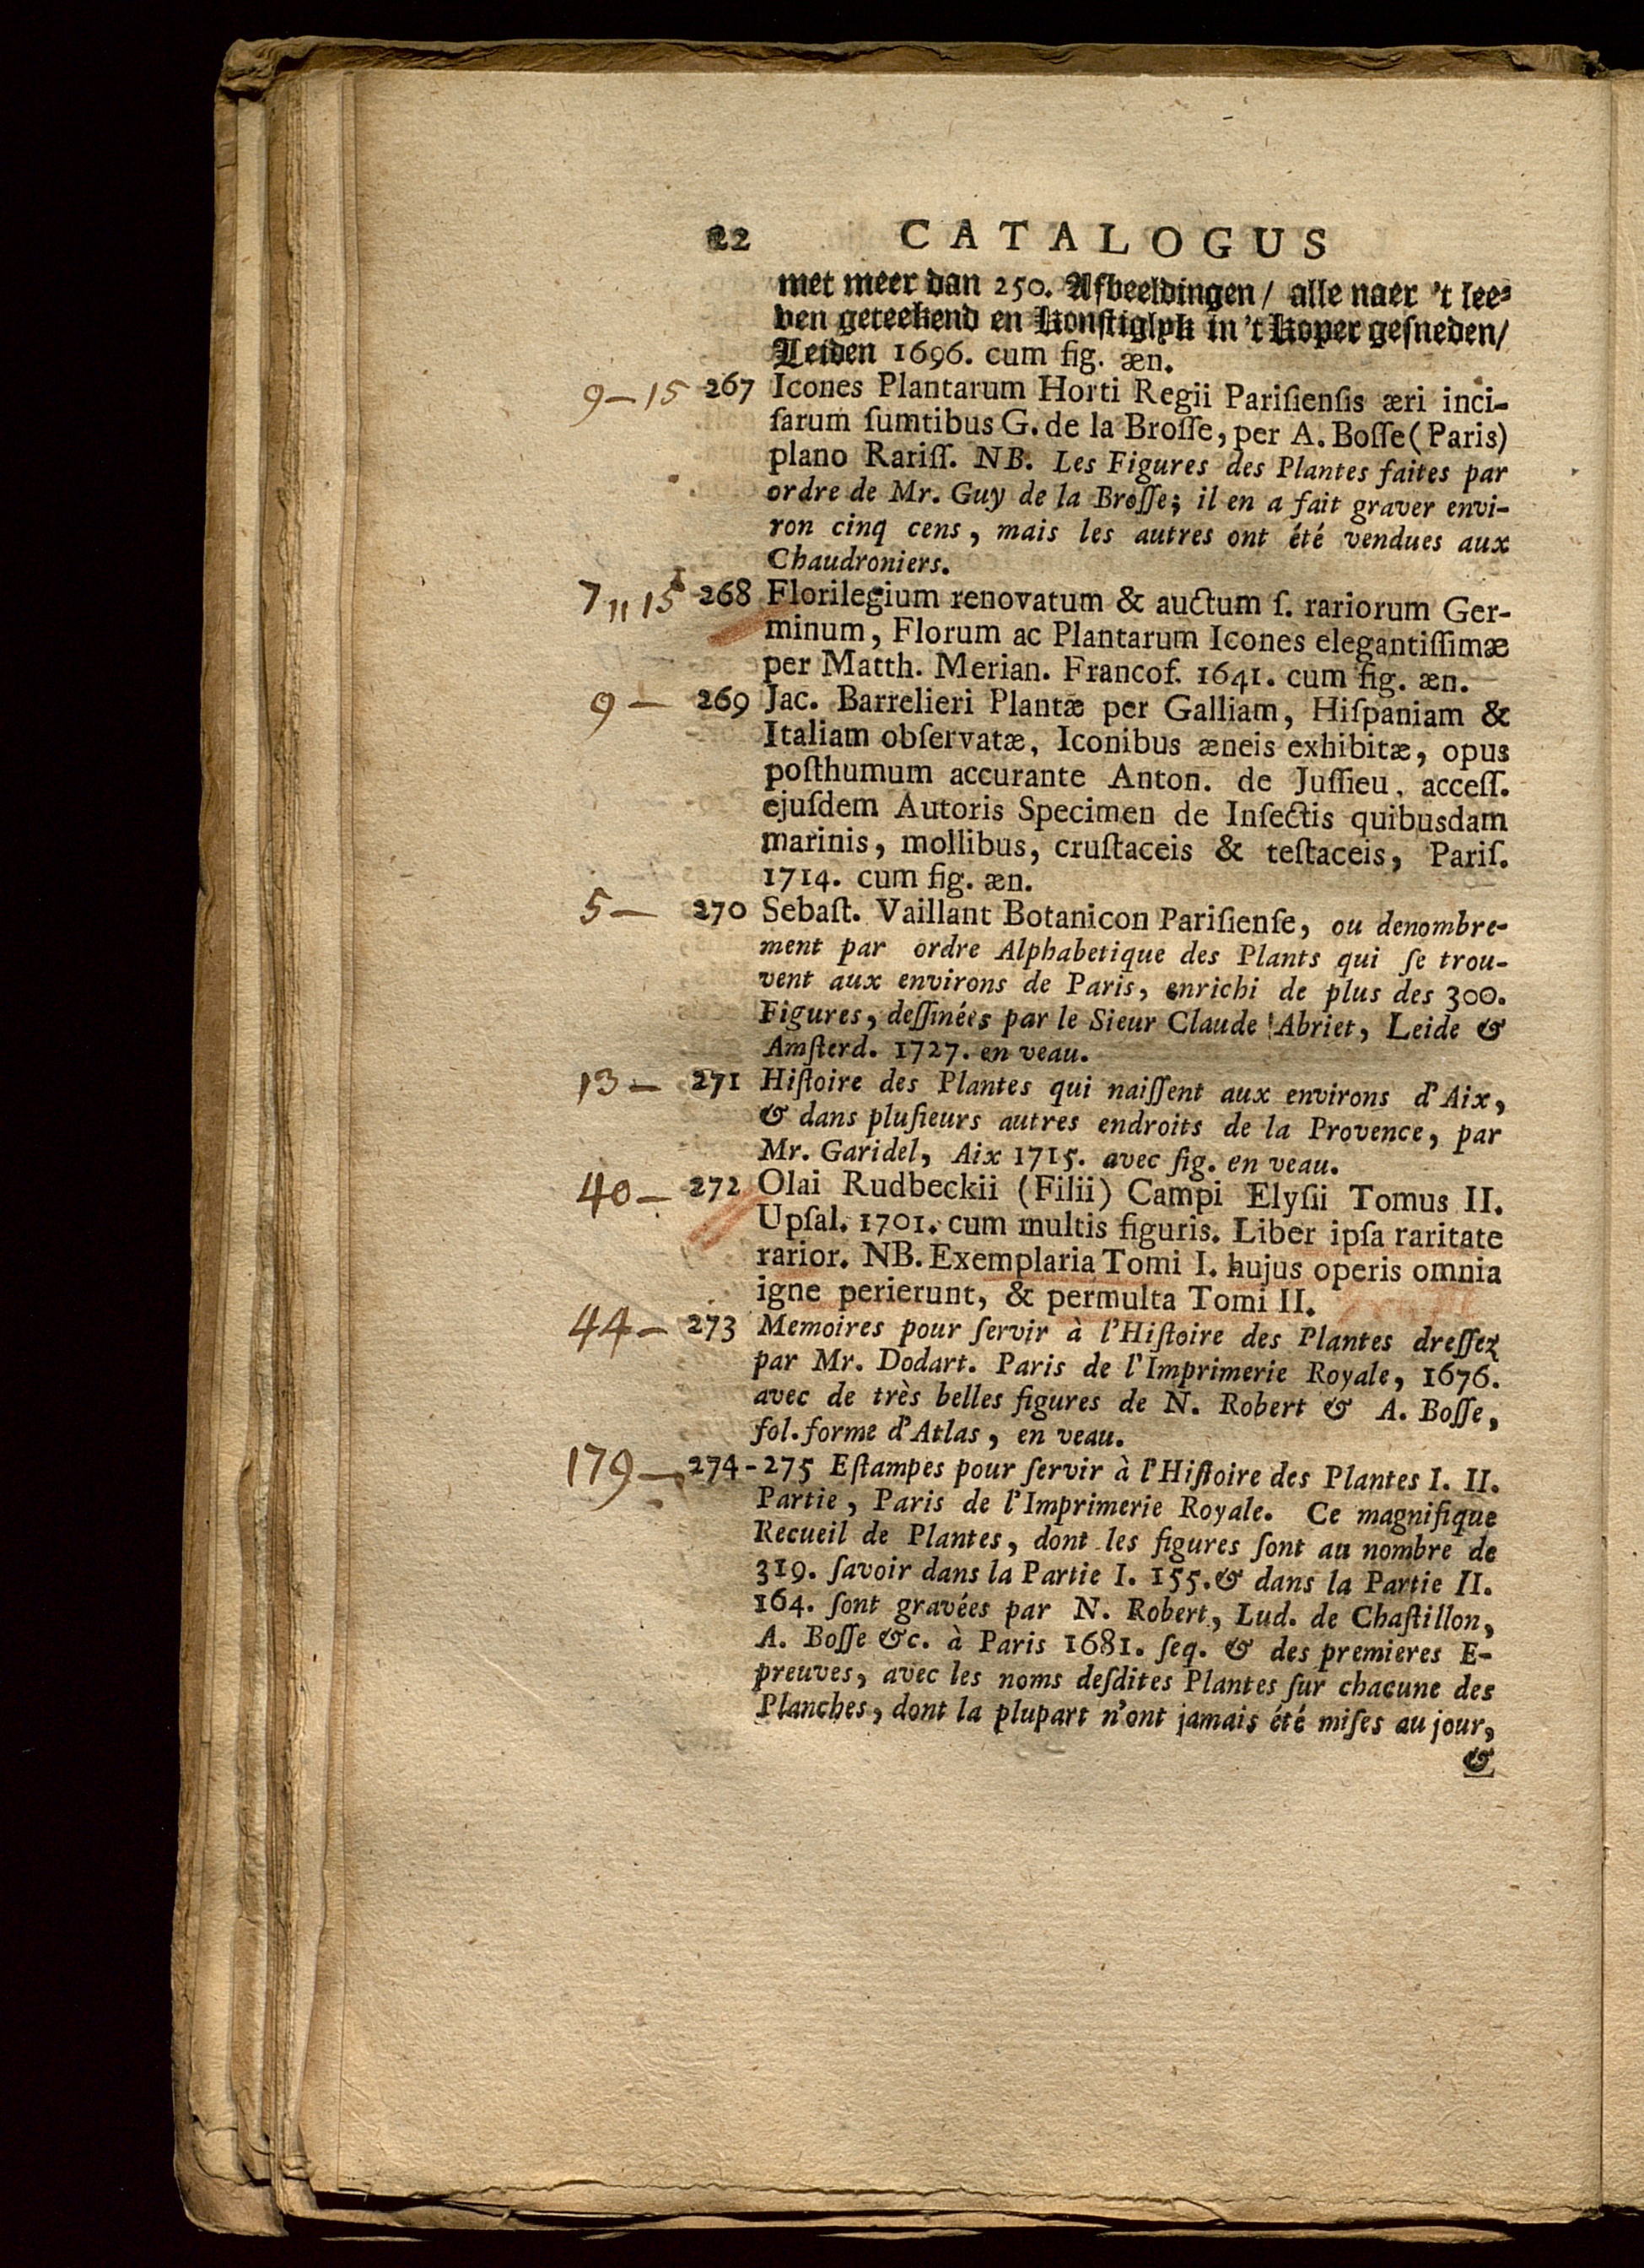 22 CATALOGUS
met meer dan 250. Afbeeldingen / alle naer 't lee-
ven geteekend en konstiglyk in 't koper geſneden /
Leiden 1696. cum fig. æn.
9 – 15 267 Icones Plantarum Horti Regii Pariſienſis æri inci-
ſarum ſumtibus G. de la Broſſe, per A. Boſſe (Paris)
plano Rariſſ. NB. Les Figures des Plantes faites par
ordre de Mr. Guy de la Broſſe; il en a fait graver envi-
ron cinq cens, mais les autres ont été vendues aux
Chaudroniers.
7 ,, 15 268 Florilegium renovatum & auctum ſ. rariorum Ger-
minum, Florum ac Plantarum Icones elegantiſſimæ
per Matth. Merian. Francof. 1641. cum fig. æn.
9 – 269 Jac. Barrelieri Plantæ per Galliam, Hiſpaniam &
Italiam obſervatæ, Iconibus æneis exhibitæ, opus
poſthumum accurante Anton. de Juſſieu, acceſſ.
ejuſdem Autoris Specimen de Inſectis quibusdam
marinis, mollibus, cruſtaceis & teſtaceis, Pariſ.
1714. cum fig. æn.
5 – 270 Sebaſt. Vaillant Botanicon Pariſienſe, ou denombre-
ment par ordre Alphabetique des Plants qui ſe trou-
vent aux environs de Paris, enrichi de plus des 300.
Figures, deſſinées par le Sieur Claude Abriet, Leide &
Amſterd. 1727. en veau.
13 – 271 Hiſtoire des Plantes qui naiſſent aux environs d'Aix,
& dans pluſieurs autres endroits de la Provence, par
Mr. Garidel, Aix 1715. avec fig. en veau.
40 – 272 Olai Rudbeckii (Filii) Campi Elyſii Tomus II.
Upſal. 1701. cum multis figuris. Liber ipſa raritate
rarior. NB. Exemplaria Tomi I. hujus operis omnia
igne perierunt, & permulta Tomi II.
44 – 273 Memoires pour ſervir à l'Hiſtoire des Plantes dreſſez
par Mr. Dodart. Paris de l'Imprimerie Royale, 1676.
avec de très belles figures de N. Robert & A. Boſſe,
fol. forme d'Atlas, en veau.
179 – 274-275 Eſtampes pour ſervir à l'Hiſtoire des Plantes I. II.
Partie, Paris de l'Imprimerie Royale. Ce magnifique
Recueil de Plantes, dont les figures ſont au nombre de
319. ſavoir dans la Partie I. 155. & dans la Partie II.
164. ſont gravées par N. Robert, Lud. de Chaſtillon,
A. Boſſe &c. à Paris 1681. ſeq. & des premieres E-
preuves, avec les noms deſdites Plantes ſur chacune des
Planches, dont la plupart n'ont jamais été miſes au jour,
&